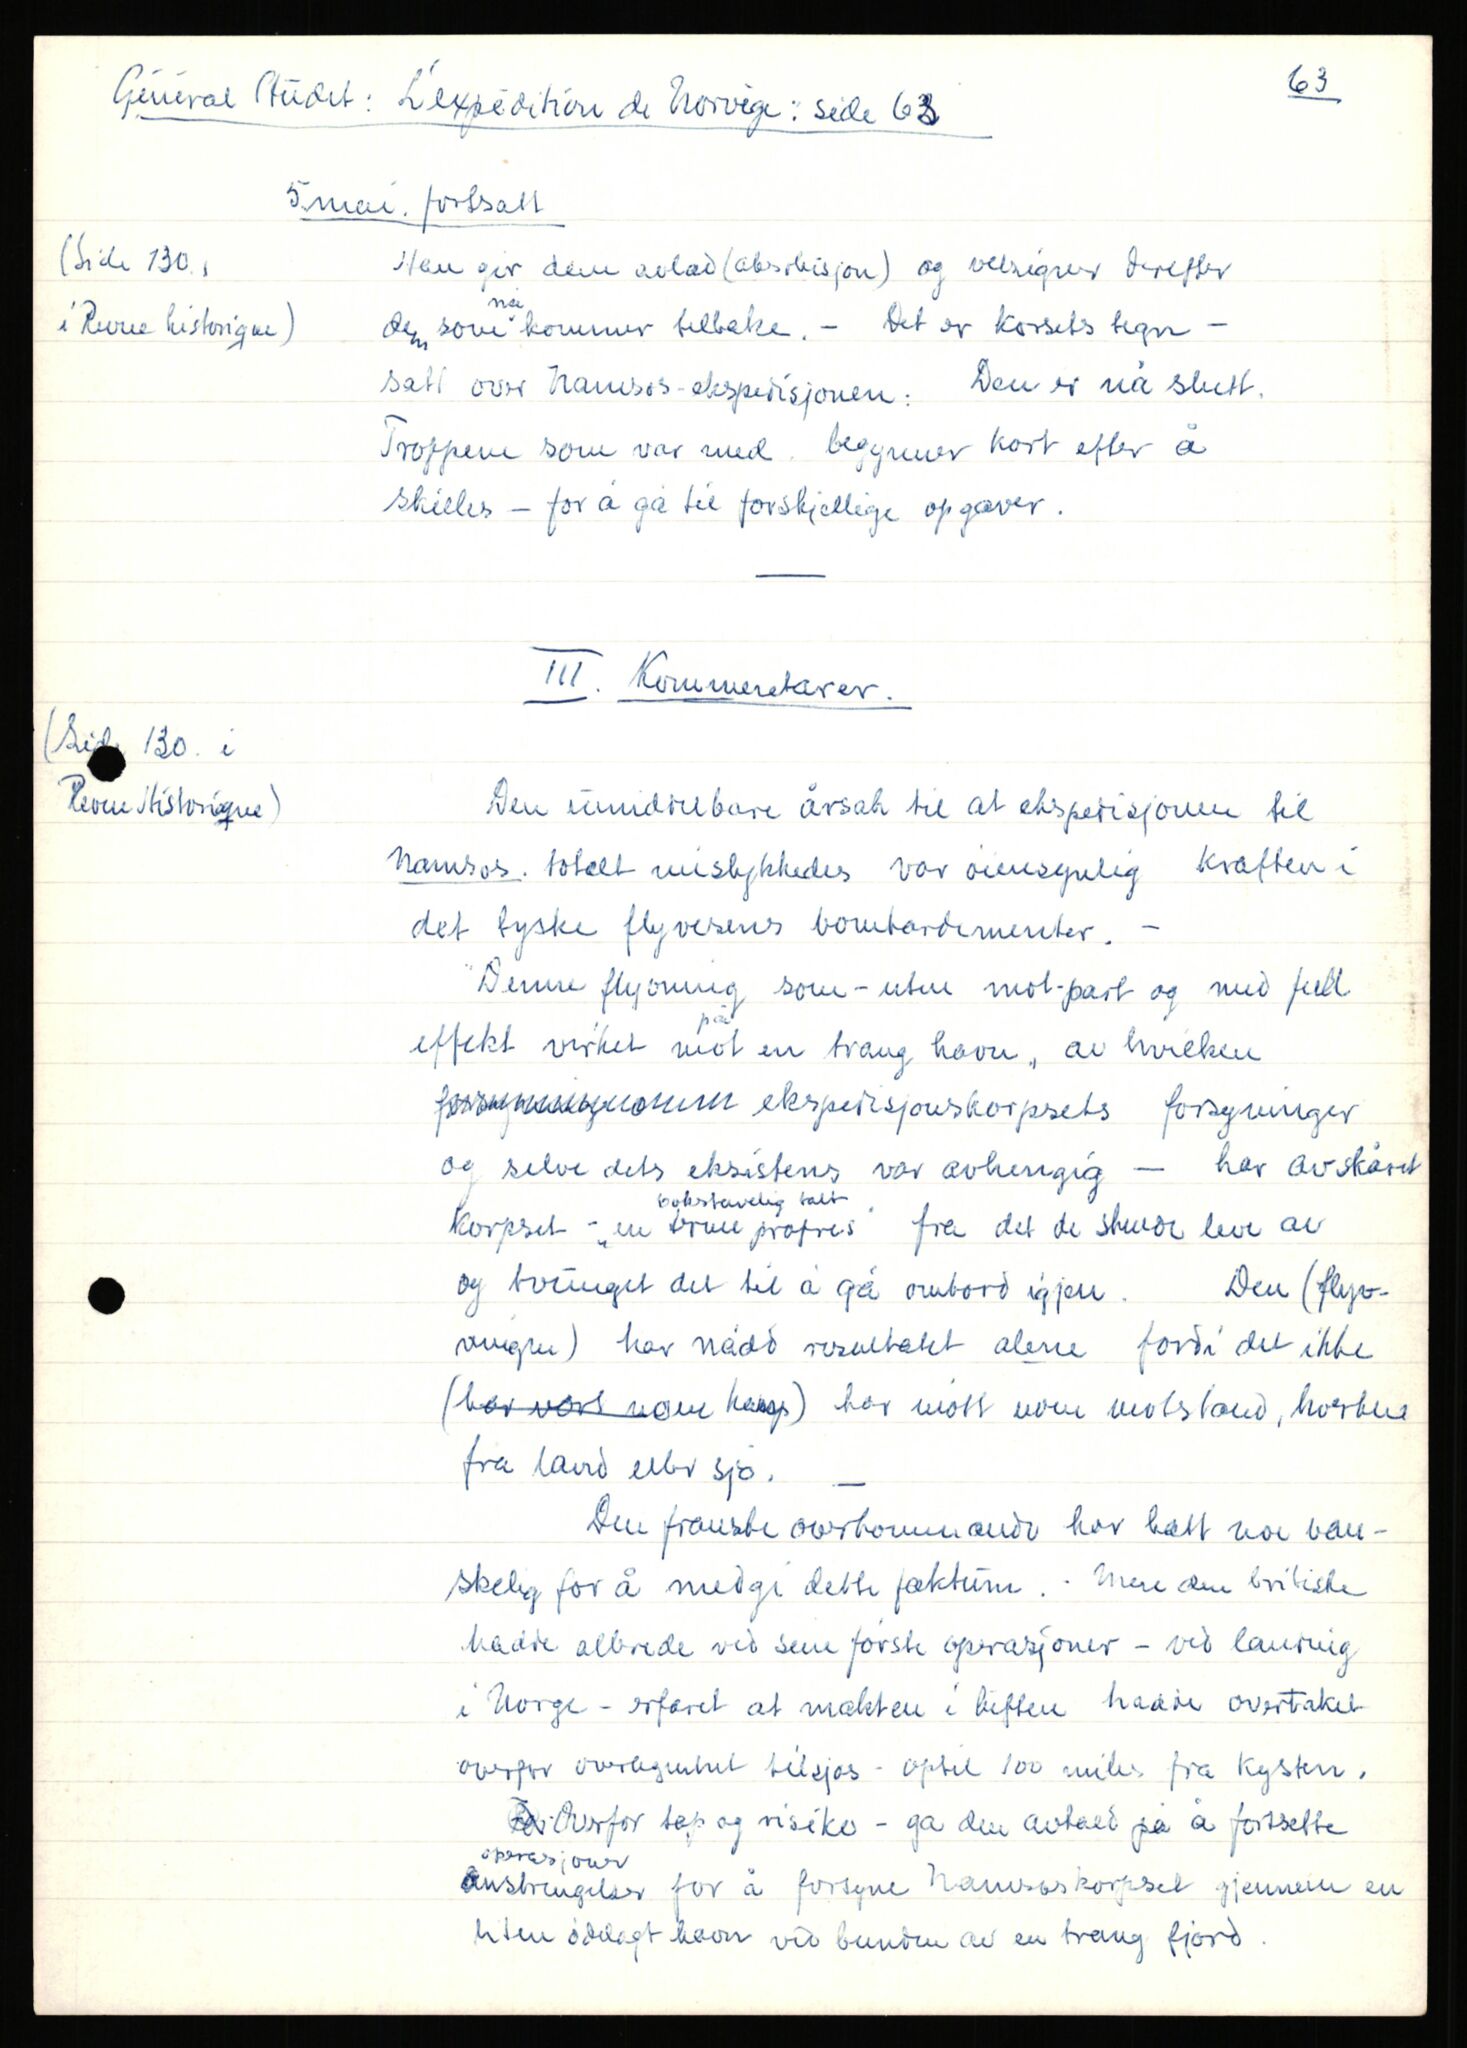 63
Général Audet: L'expédition de Norvège: side 63
5. mai. fortsatt
(Side 130.,
i Revue historique)
Han gir dem avlad (absolusjon) og velsigner derefter
dem som nå kommer tilbake. – Det er korsets tegn –
satt over Namsos-ekspedisjonen: Den er nå slutt.
Troppene som var med. begynner kort efter å
skilles – for å gå til forskjellige opgaver.
III. Kommentarer.
(Side 130. i
Revue Historique)
Den umiddelbare årsak til at ekspedisjonen til
Namsos. totalt mislykkedes var øiensynlig kraften i
det tyske flyvesens bombardementer. –
"Denne flyvning som – uten mot-part og med full
effekt virket mot på en trang havn, av hvilken
ekspedisjonskorpsets forsyninger
og selve dets eksistens var avhengig – har avskåret
korpset – "en terme propres" bokstavelig talt fra det de skulde leve av
og tvunget det til å gå ombord igjen. Den (flyv-
vnigen) har nådd resultatet alene fordi det ikke
(har vært noen kamp) har møtt noen motstand, hverken
fra land eller sjø. –
Den franske overkommando har hatt noe van-
skelig for å medgi dette faktum. – Men den britiske
hadde allerede ved sine første operasjoner – ved landing
i Norge – erfaret at makten i luften hadde overtaket
overfor overlegenhet tilsjøs – optil 100 miles fra kysten.
Overfor tap og risiko – ga den avkald på å fortsette
operasjoner
anstrengelser for å forsyne Namsoskorpset gjennem en
liten ødelagt havn ved bunden av en trang fjord.